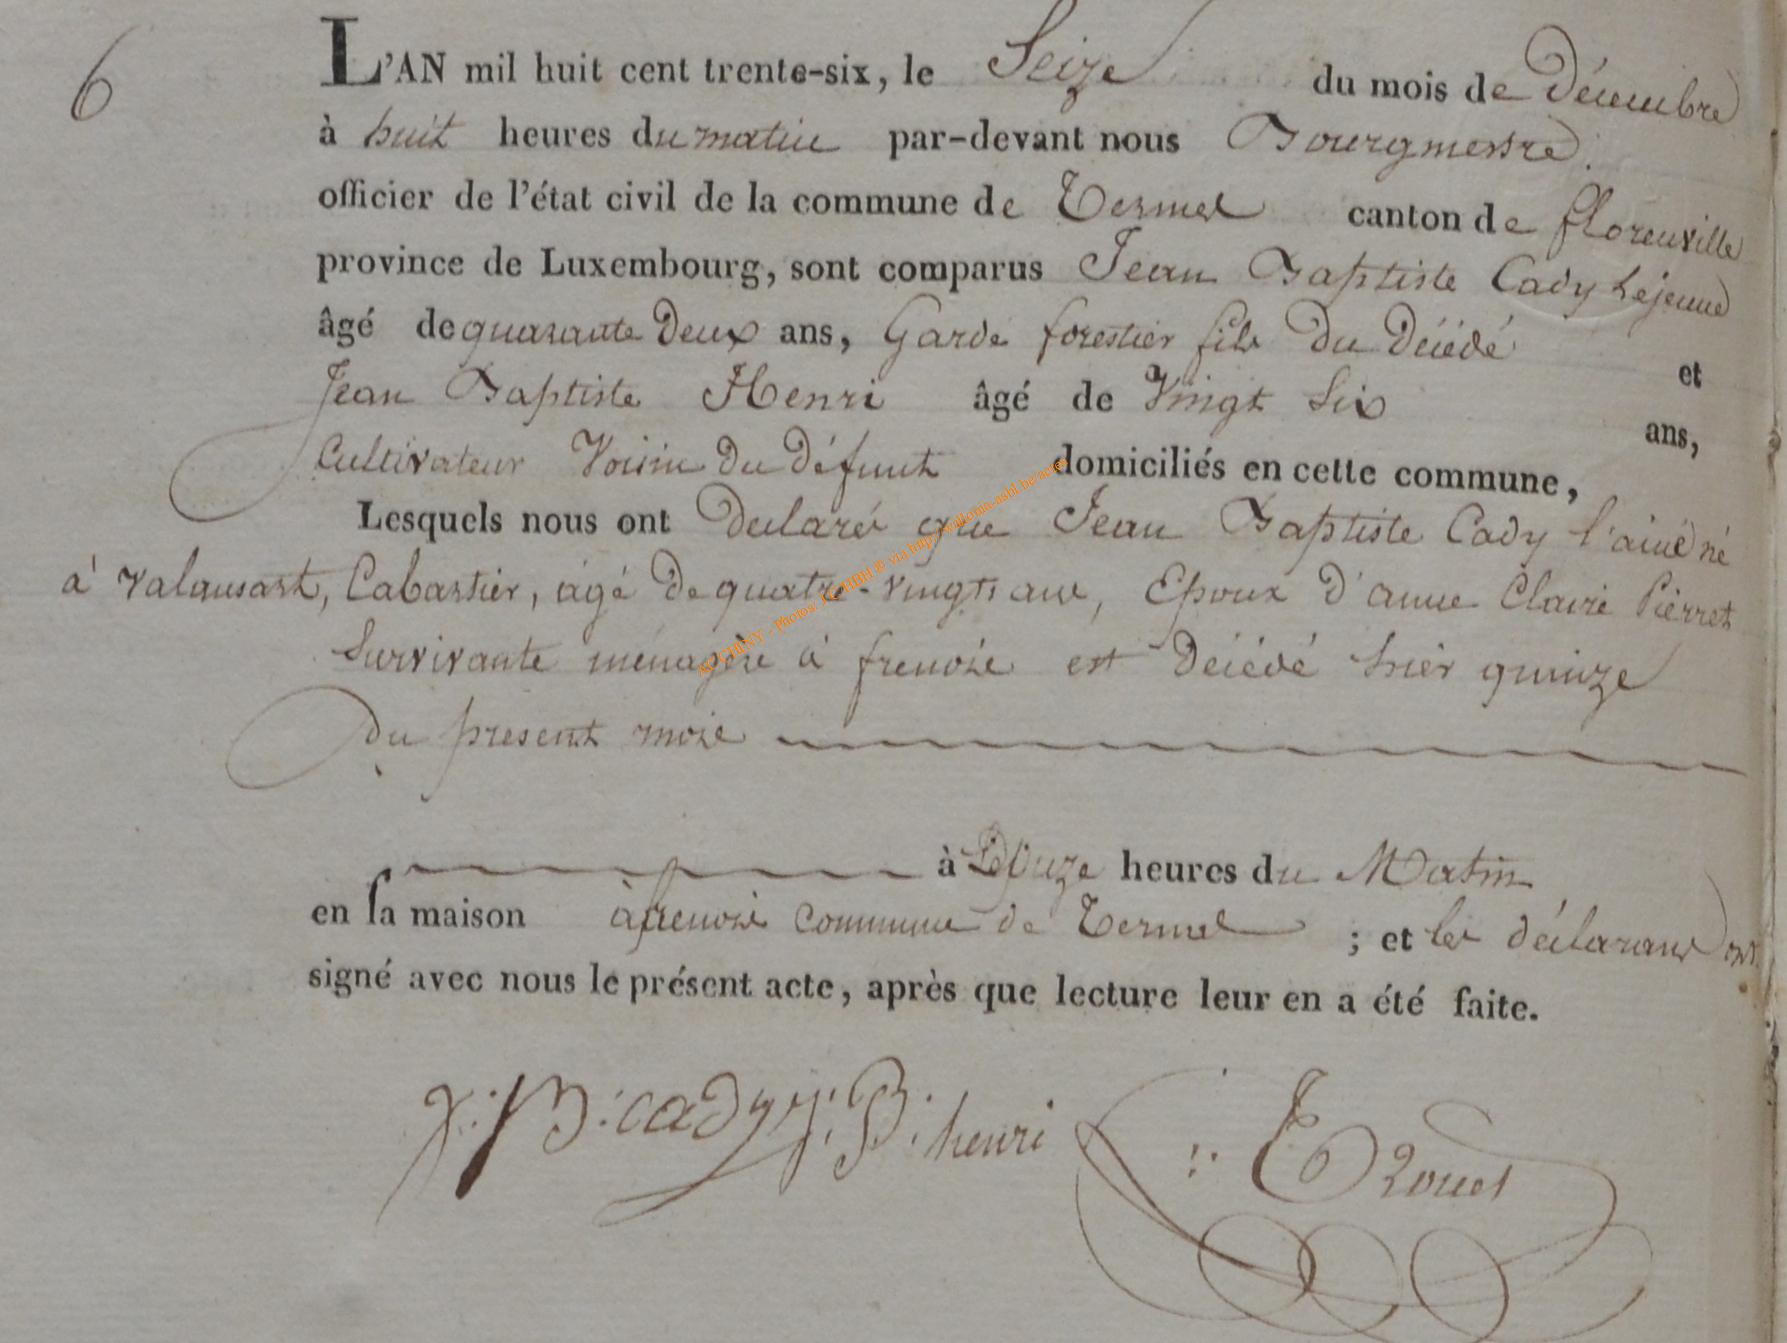 6
L'AN mil huit cent trente-six, le Seize du mois de Décembre
à huit heures du matin par-devant nous Bourgmestre
officier de l'état civil de la commune de Termes canton de florenville
province de Luxembourg, sont comparus Jean Baptiste Cady Lejeune
âgé de quarante Deux ans, Garde forestier fils Du Décédé et
Jean Baptiste Henri âgé de Vingt Six ans,
Cultivateur Voisin Du Défunt domiciliés en cette commune,
Lesquels nous ont Declaré que Jean Baptiste Cady l'ainé né
à Valansart, Cabartier, agé De quatre-vingts ans, Epoux D'anne Claire Pierret
Survivante ménagère à frenois est Décédé hier quinze
Du present mois
à Douze heures du Matin
en sa maison à frenois Commune de Termes ; et les déclarans ont
signé avec nous le présent acte, après que lecture leur en a été faite.
J:B:cady J:B:henri